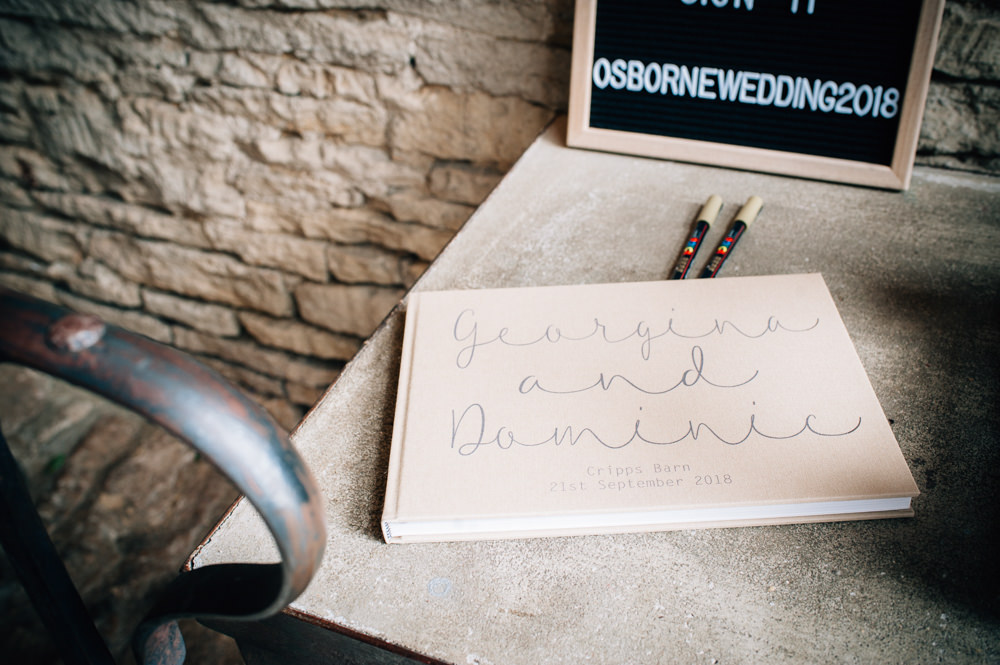 IT
OSBORNEWEDDING2018
Georgina
and
Dominic
Cripps Barn
21st September 2018